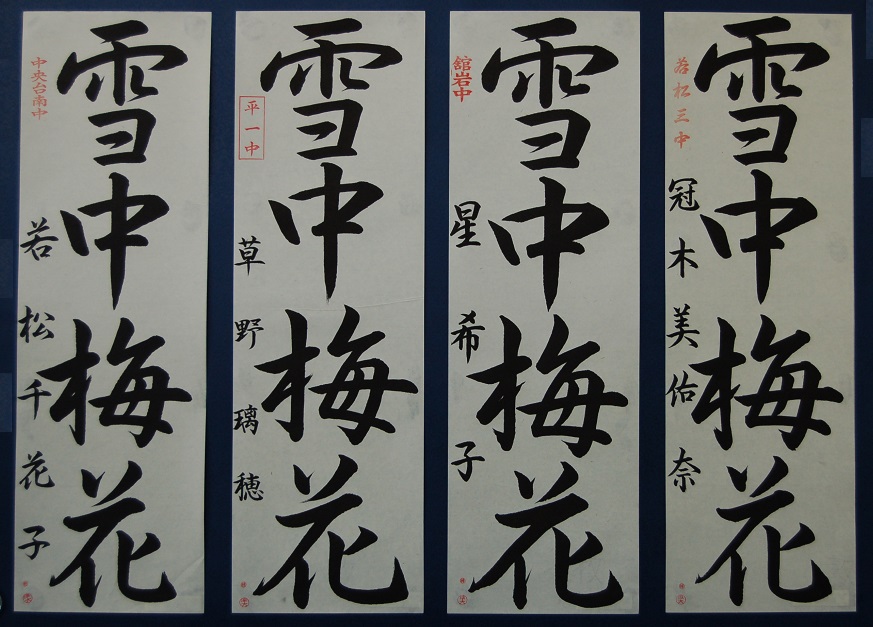 雪中梅花
若松三中
冠木美佑奈
雪中梅花
舘岩中
星希子
雪中梅花
平一中
草野璃穂
雪中梅花
中央台南中
若松千花子